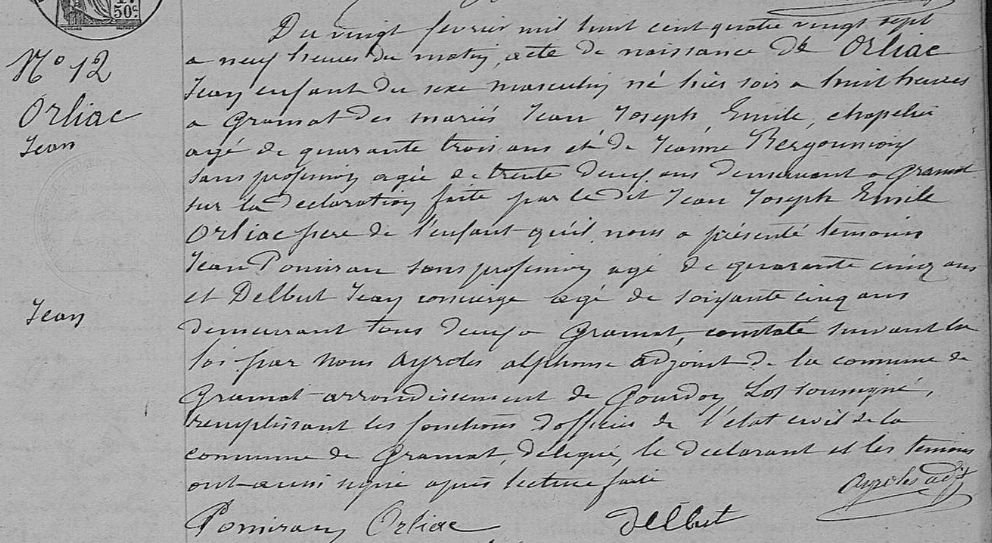 50c
Du vingt février mil huit cent quatre vingt sept
N° 12
a neuf heures du matin, acte de naissance de Orliac
Orliac
Jean enfant du sexe masculin né hier soir a huit heures
Jean
a Gramat des mariés Jean Joseph Emile, chapelier
agé de quarante trois ans et de Jeanne Bergounioux
sans profession agée de trente deux ans demeurant a Gramat
sur la declaration faite par le dit Jean Joseph Emile
Orliac pere de l'enfant qu'il nous a présenté temoins
Jean Pomiran sans profession agé de quarante cinq ans
Jean
et Delbut Jean concierge agé de soixante cinq ans
demeurant tous deux a Gramat, constaté suivant la
loi par nous Ayroles alphonse adjoint de la commune de
Gramat arrondissement de Gourdon Lot soussigné,
remplissant les fonctions d'officier de l'état civil de la
commune de Gramat, delegué, le declarant et les temoins
ont aussi signé après lecture faite
Ayroles adjt
Pomiran Orliac Delbut